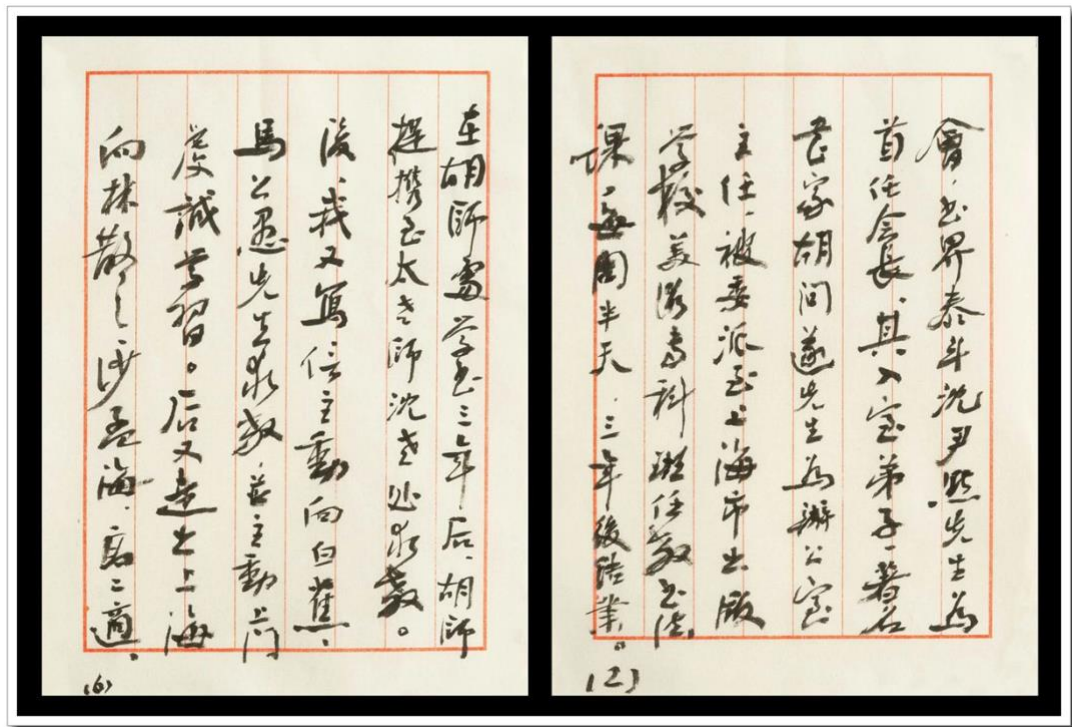 會，书界泰斗沈尹默先生為
首任会長，其入室弟子、著名
书家胡问遂先生為辦公室
主任，被委派至上海市出版
学校美術专科班任教书法
課，每周半天，三年後结業。
(2)
在胡師處学书三年后，胡師
提携至太老師沈老处求教。
後，我又寫信主動向白蕉、
馬公愚先生求教，并主動上门
虔誠学習。后又走出上海
向林散之、沙孟海、高二適、
(6)